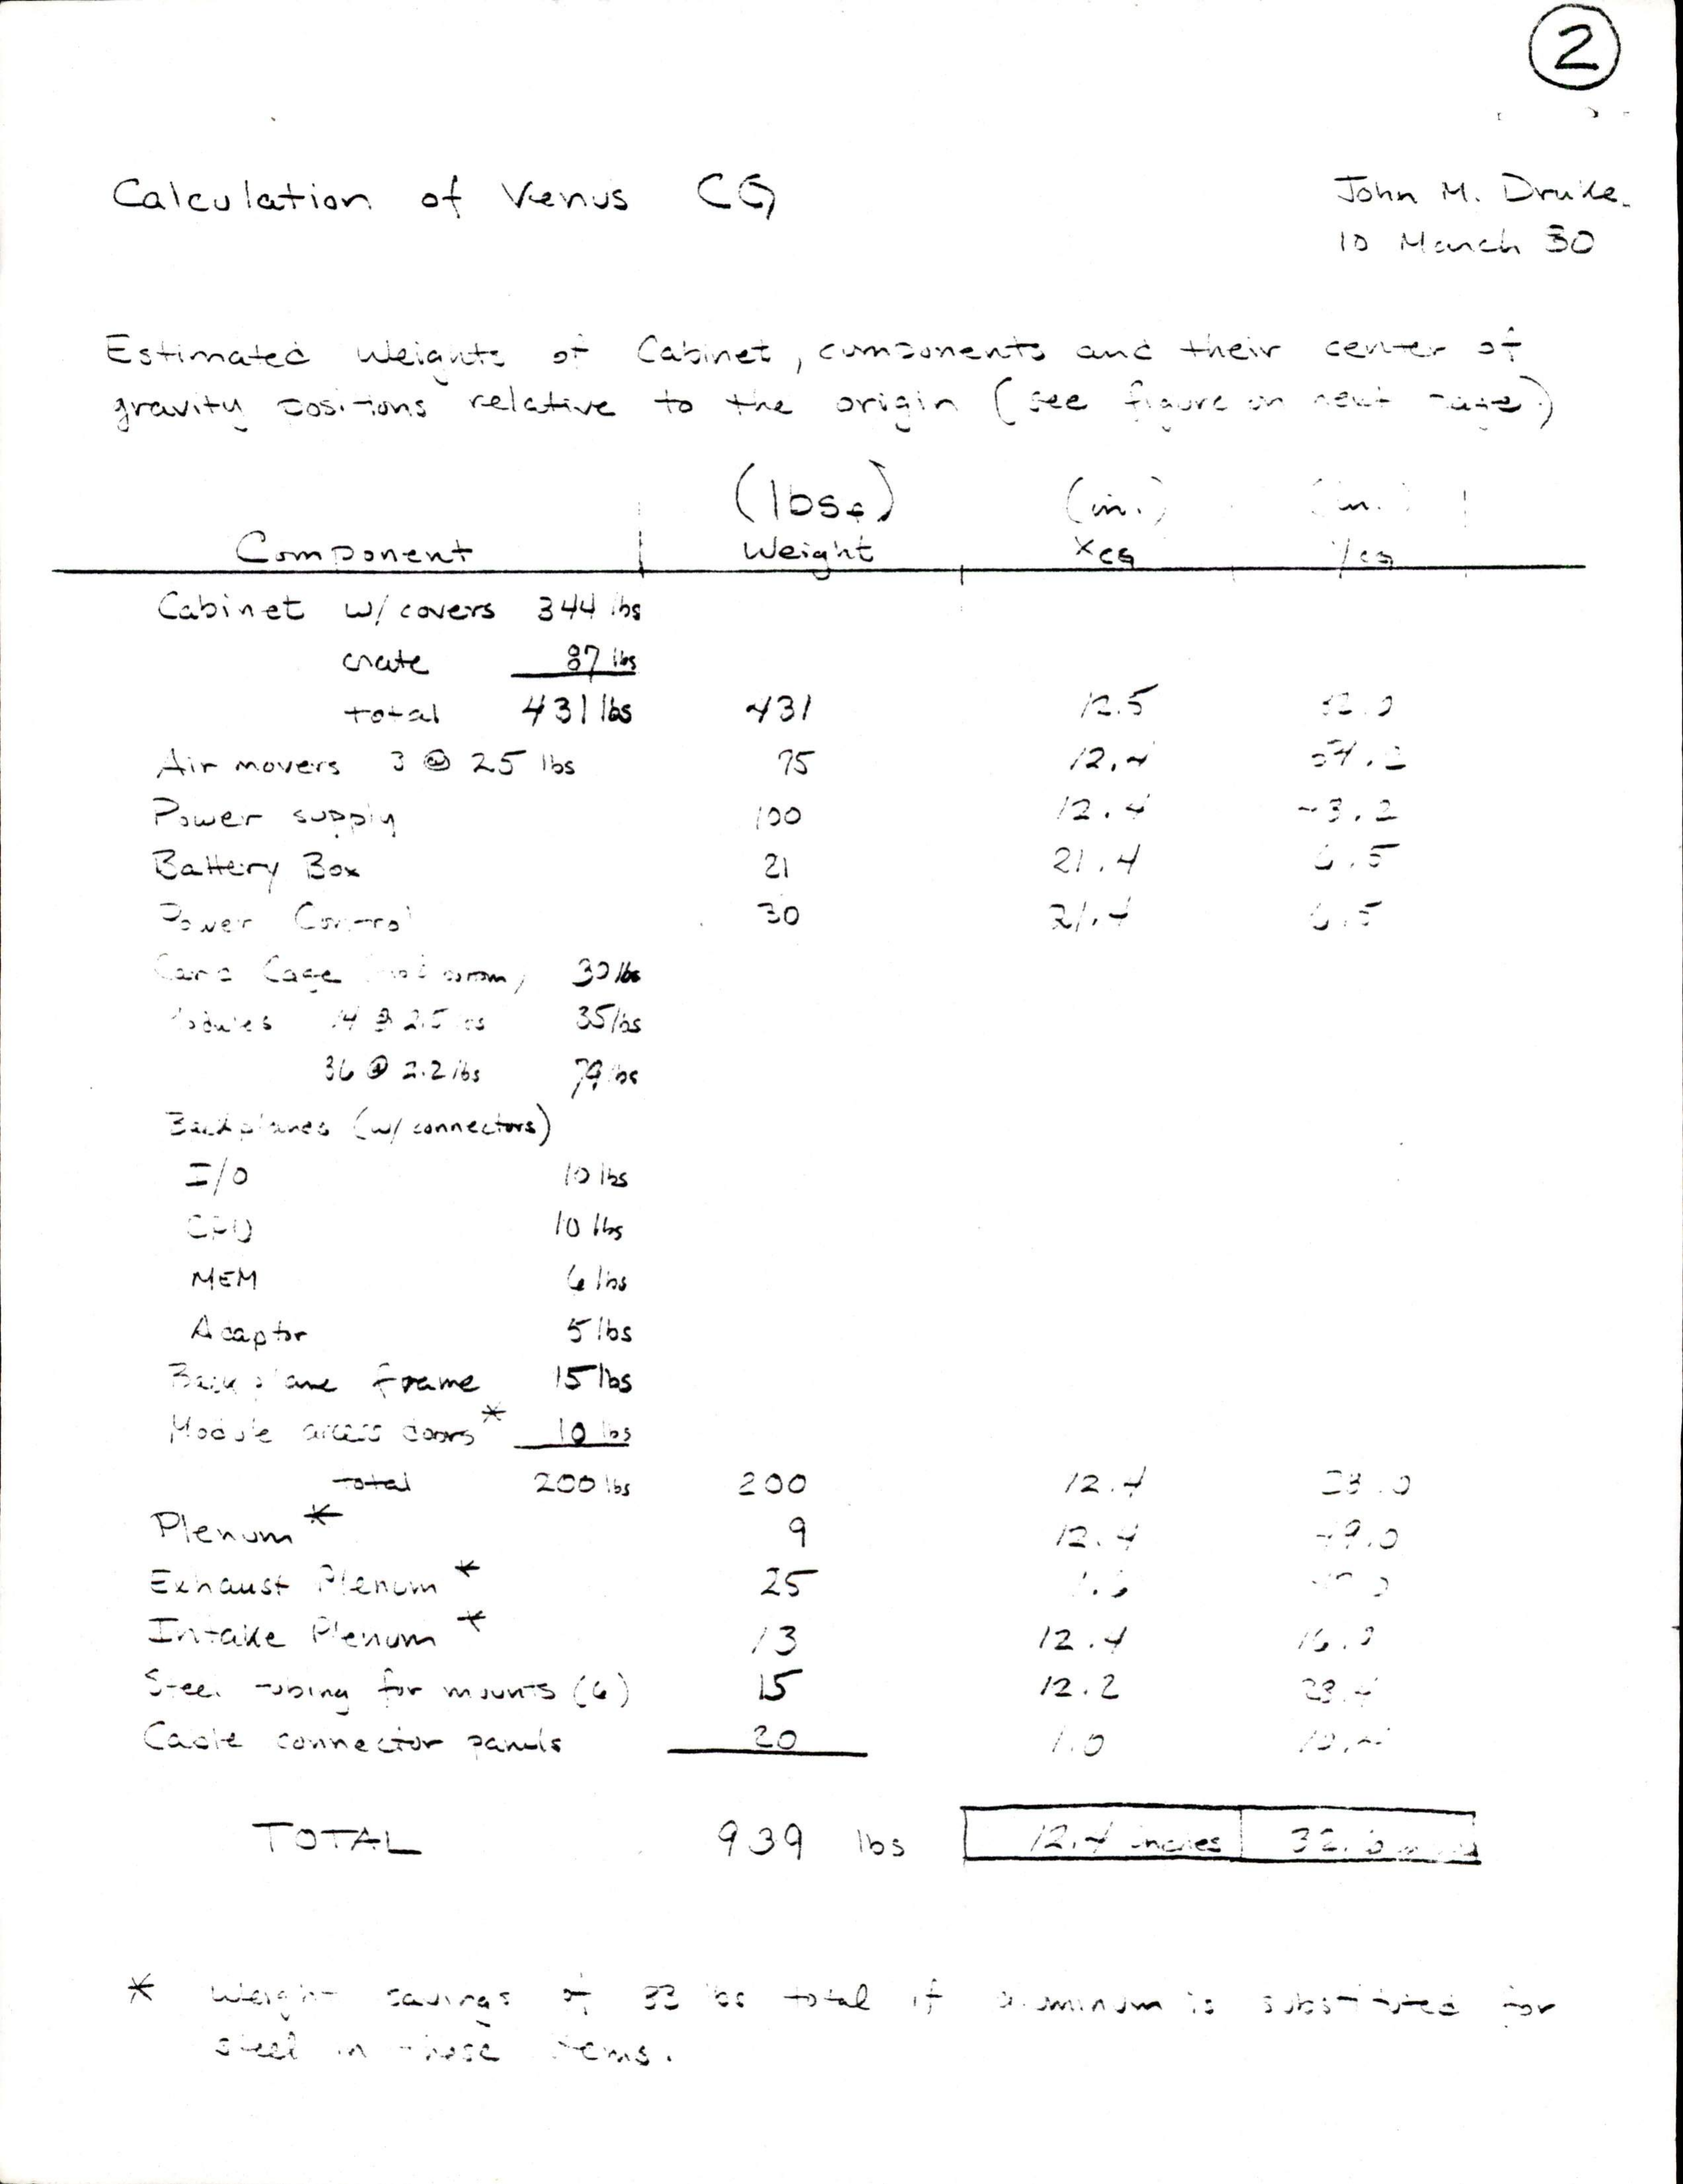 2
Calculation of Venus CG
John M. Drake
10 March 80
Estimated weights of Cabinet, components and their center of
gravity positions relative to the origin (see figure on next page)
(lbsf) (in.) (in.)
Component Weight XCG YCG
Cabinet w/covers 344 lbs
crate 87 lbs
total 431 lbs 431 12.5 32.0
Air movers 3 @ 25 lbs 75 12.4
Power supply 100 12.4
Battery Box 21 21.4 6.5
Power Control 30 21.4 6.5
Card Cage 30 lbs
Modules 14 @ 2.5 lbs 35 lbs
36 @ 2.2 lbs 79 lbs
Backplanes (w/ connectors)
I/O 10 lbs
CPU 10 lbs
MEM 6 lbs
Adaptor 5 lbs
Backplane frame 15 lbs
Module access doors * 10 lbs
total 200 lbs 200 12.4
Plenum * 9 12.4
Exhaust Plenum * 25
Intake Plenum * 13 12.4 16.0
Steel tubing for mounts (6) 15 12.2
Cable connector panels 20 1.0
TOTAL 939 lbs 12.4 inches
* Weight savings of 33 lbs total if aluminum is substituted for
steel in these items.